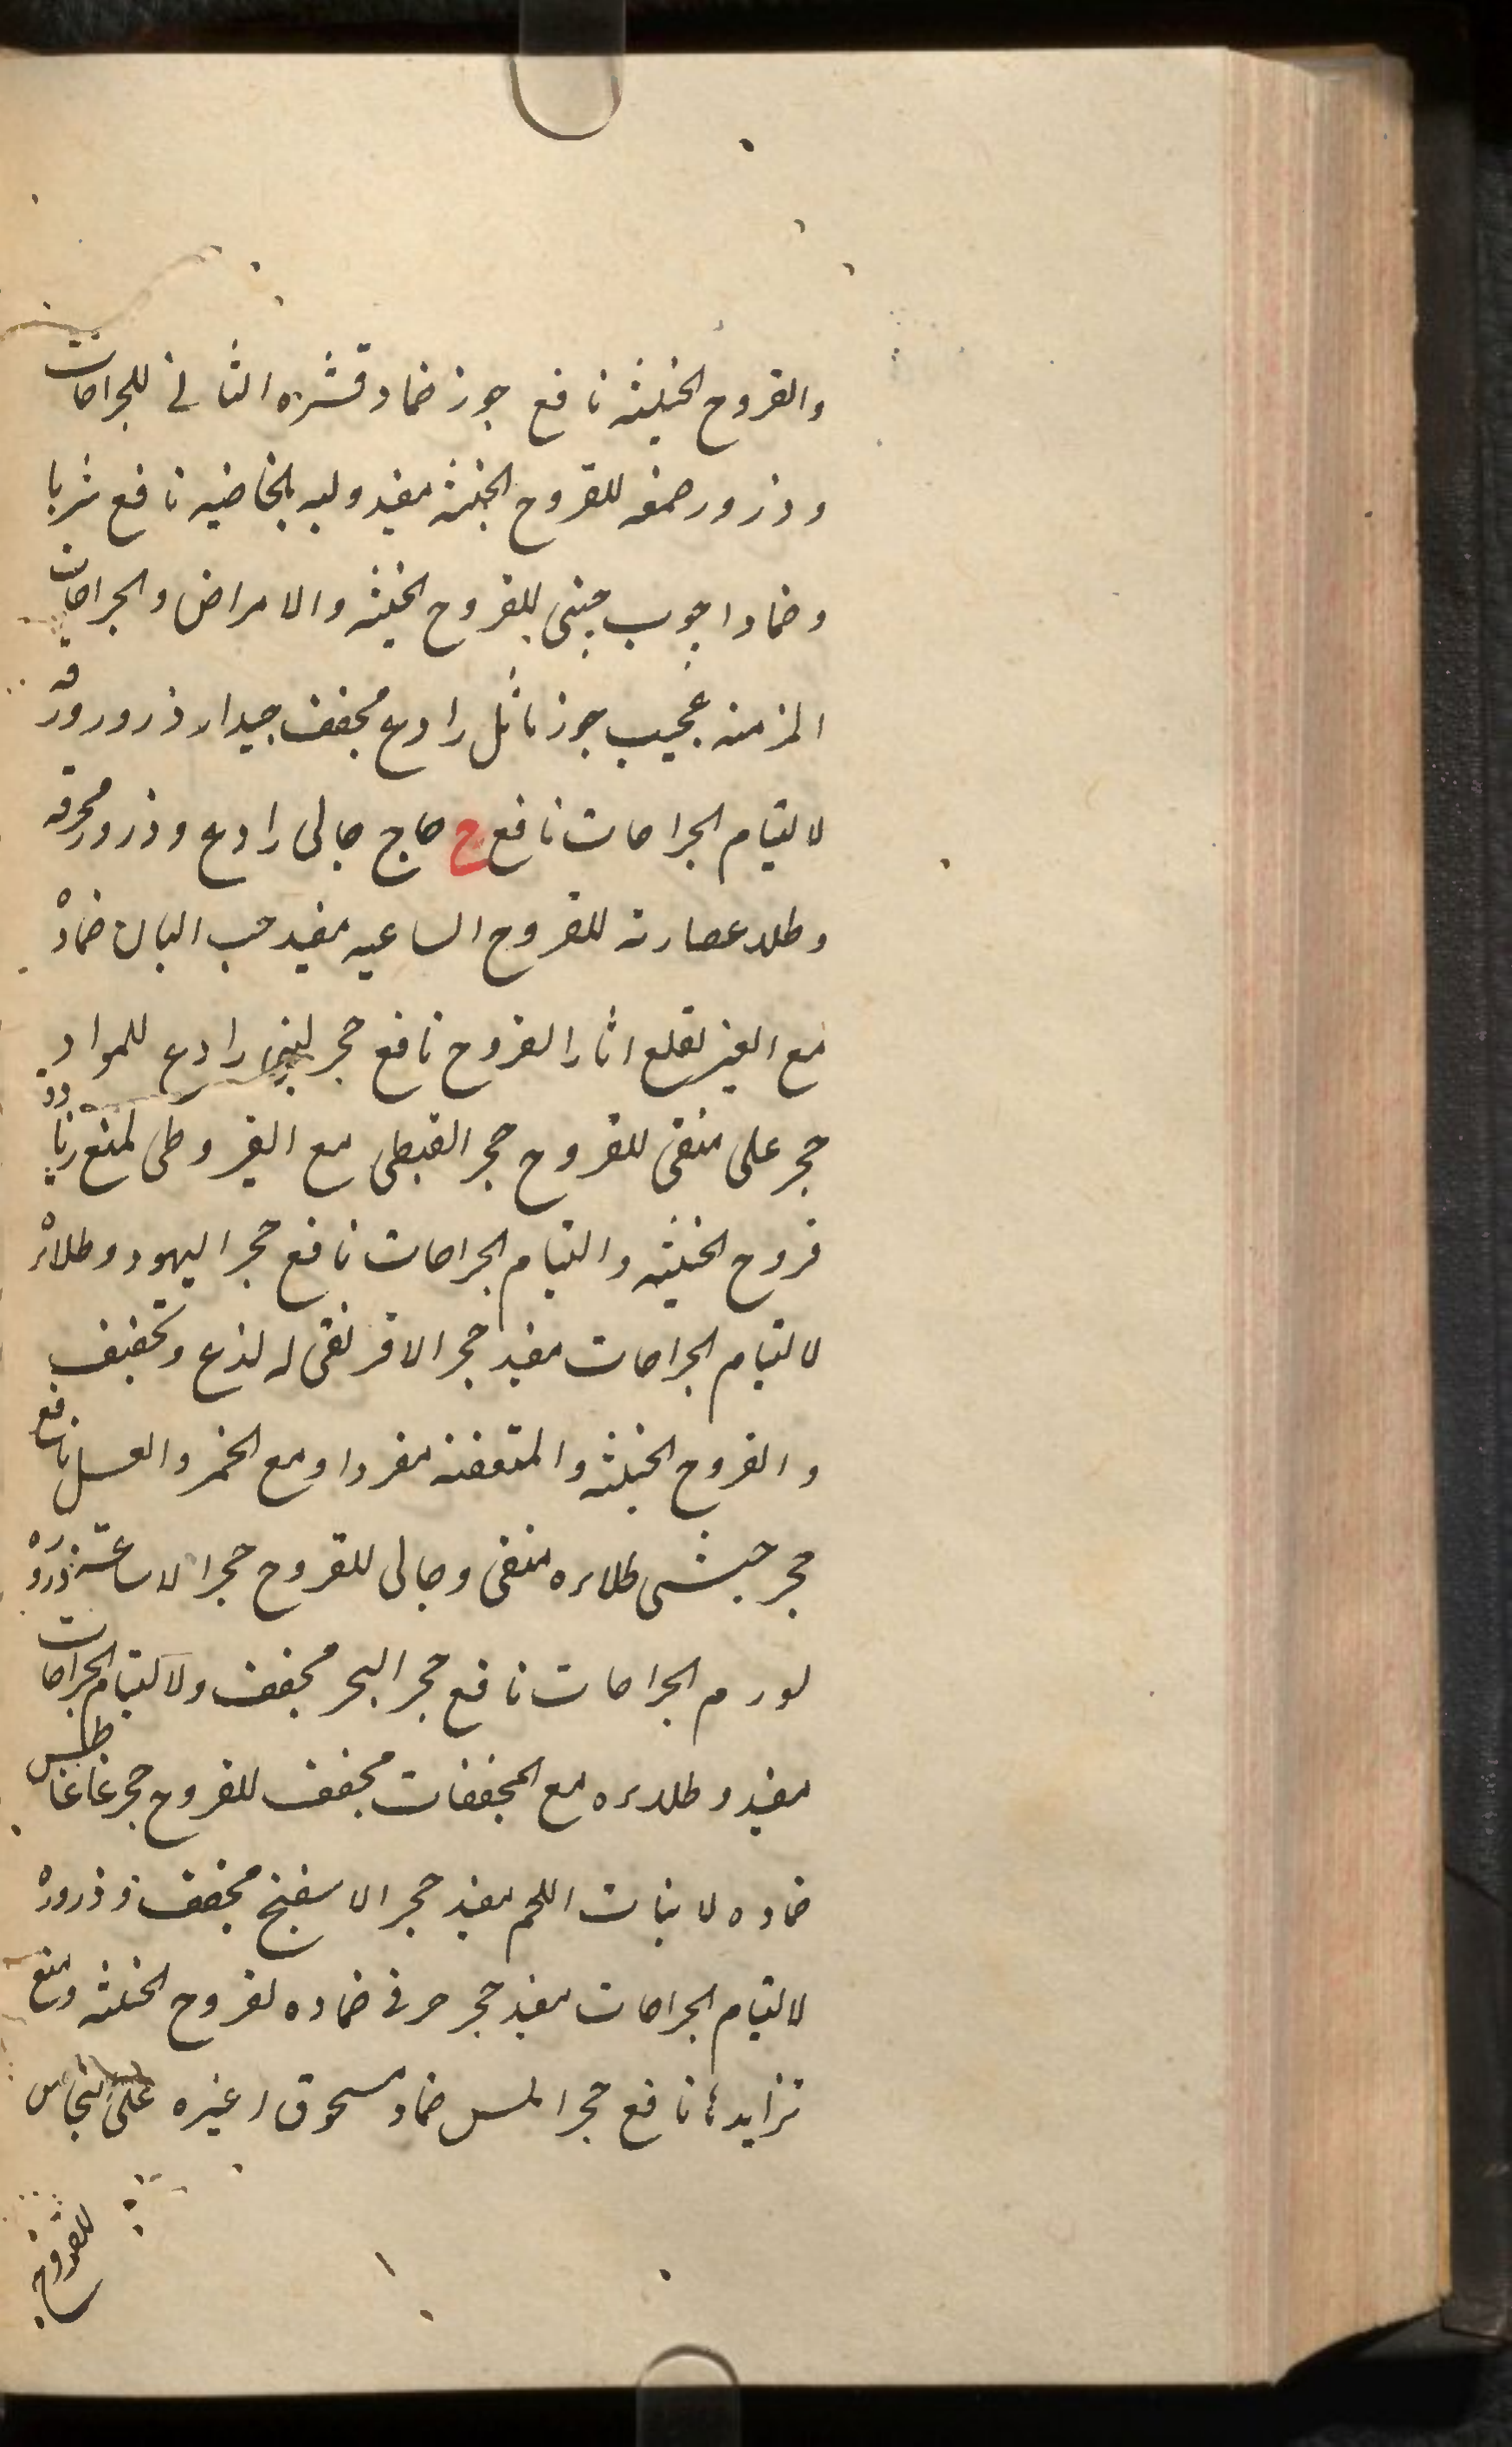 والقروح الخبيثه نافع جوز ضماد قشره الثانی للجراحات
وذرور صمغه للقروح الخبیثه مفید ولبه بالخاصیه نافع شربا
وضمادا جوب چینی للقروح الخبیثه والامراض والجراحات
المزمنه عجیب جوز ماثل رادع مجفف جیدار ذرور ورقه
لالتیام الجراحات نافع ح حاج جالی رادع وذرور محرقه
وطلاء عصارته للقروح الساعیه مفید حب البان ضماده
مع الغیر لقلع اثار القروح نافع حجر لبنی رادع للمواد
حجر علی منقی للقروح حجر القبطی مع القیروطی لمنع زیاده
قروح الخبیثه والتیام الجراحات نافع حجر الیهود وطلائه
لالتیام الجراحات مفید حجر الافرنقی له لذع وتجفیف
والقروح الخبیثه والمتعفنه مفردا ومع الخمر والعسل نافع
حجر حبشی طلاءه منقی وجالی للقروح حجر الاساکفه ذروره
لورم الجراحات نافع حجر البحر مجفف ولالتیام الجراحات
مفید وطلاءه مع المجففات مجفف للقروح حجر غاغاطیس
ضماده لانبات اللحم مفید حجر الاسفنج مجفف وذروره
لالتیام الجراحات مفید حجر خزفی ضماده لقروح الخبیثه ومنع
تزایدها نافع حجر المسن ضماد مسحوق اغیره علی نحاس
للقروح